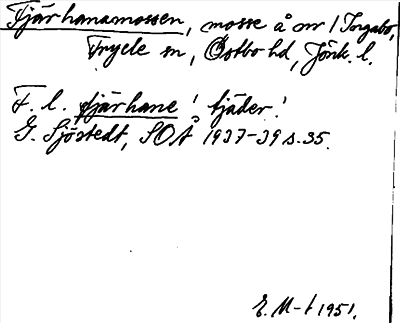 Tjärhanamossen, mosse å nr 1 Torgabo,
Fryele sn, Östbo hd, Jönk. l.
F. l. tjärhane 'tjäder'.
G. Sjöstedt, SOÅ 1937-39 s. 35.
E. M-t 1951.